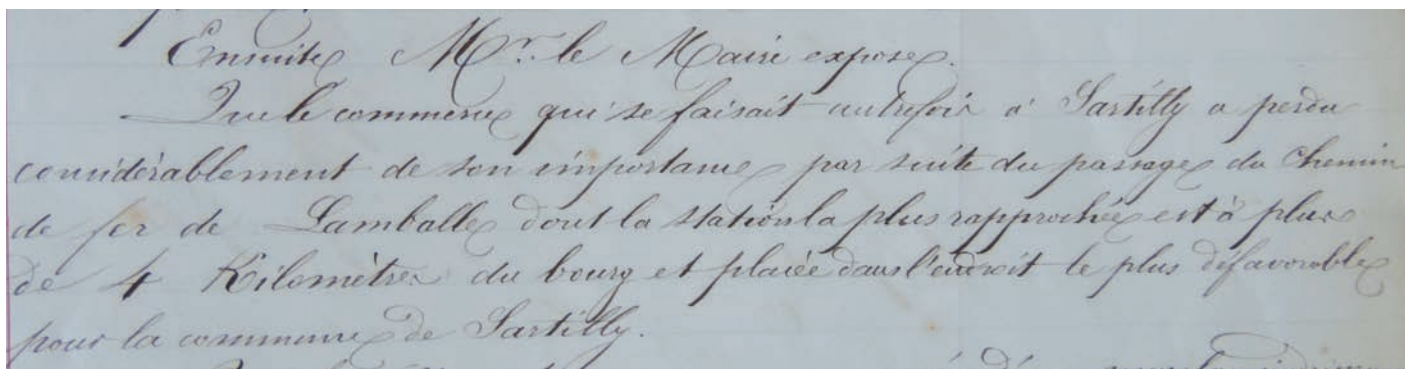 Ensuite Mr. le Maire expose.
Que le commerce qui se faisait autrefois à Sartilly a perdu
considérablement de son importance par suite du passage du Chemin
de fer de Lamballe dont la station la plus rapprochée est à plus
de 4 Kilomètres du bourg et placée dans l'endroit le plus défavorable
pour la commune de Sartilly.